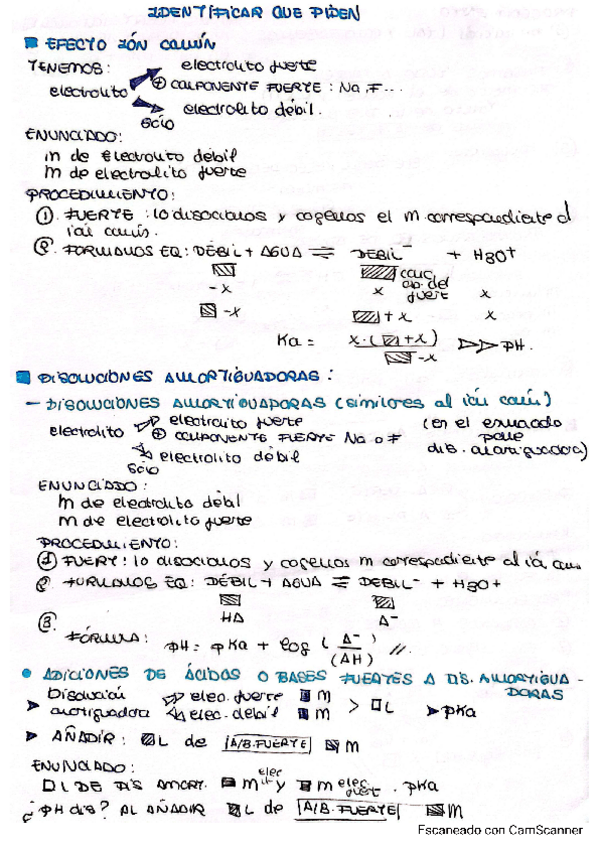 IDENTIFICAR QUE PIDEN
EFECTO IÓN COMÚN
TENEMOS: electrolito fuerte
electrolito + COMPONENTE FUERTE: Na F...
electrolito débil.
sólo
ENUNCIADO:
m de electrolito débil
m de electrolito fuerte
PROCEDIMIENTO:
1. FUERTE: lo disociamos y cogemos el m correspondiente al
ión común.
2. FORMAMOS EQ: DÉBIL + AGUA ⇌ DEBIL⁻ + H3O+
conc. del fuert
-x x x
-x +x x
Ka = x·( +x) / -x ▷▷ PH.
DISOLUCIONES AMORTIGUADORAS:
- DISOLUCIONES AMORTIGUADORAS (similares al ión común)
electrolito electrolito fuerte (en el enunciado
+ COMPONENTE FUERTE Na o F pone
electrolito débil dis. amortiguadora)
sólo
ENUNCIADO:
m de electrolito débil
m de electrolito fuerte
PROCEDIMIENTO:
1 FUERT: lo disociamos y cogemos m correspondiente al ión com
2. FORMAMOS EQ: DÉBIL + AGUA ⇌ DEBIL⁻ + H3O+
HA A⁻
3. FÓRMULA: pH = pKa + log (A⁻) / (AH) //.
ADICIONES DE ÁCIDOS O BASES FUERTES A DS. AMORTIGUA-
DORAS
Disolución elec. fuerte m
amortiguadora elec. debil m > L ➤ pKa
➤ AÑADIR: L de A/B.FUERTE m
ENUNCIADO:
L DE DIS AMORT. m elec y m elec fuert. pKa
¿PH dis? AL AÑADIR L de A/B.FUERTE M
Escaneado con CamScanner